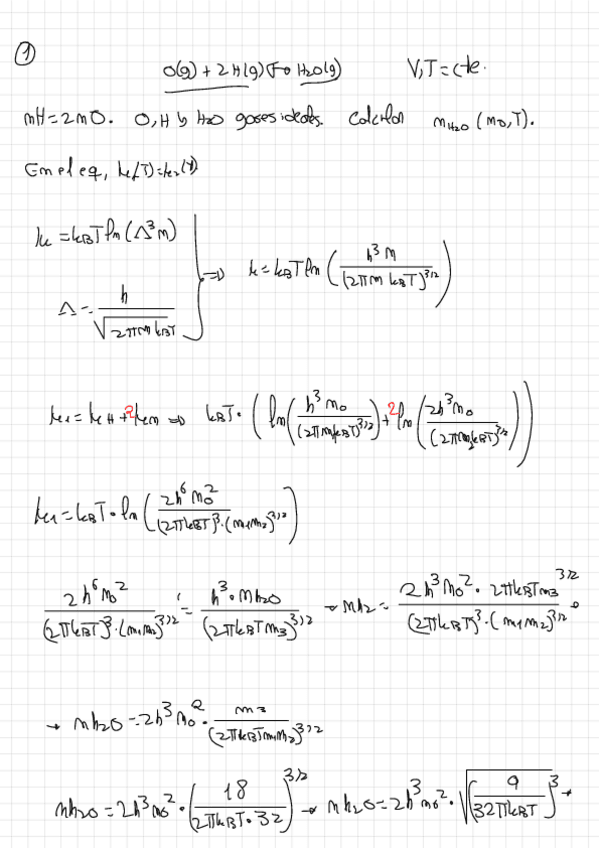 ①
O(g) + 2H(g) ⇌ H₂O(g)    V,T = cte.
nH = 2nO. O, H y H₂O gases ideales. Calcular n_H₂O (n_O, T).
En el eq, μ₁(T) = μ₂(T)
μ = k_BT ln(Λ³n)
Λ = h / √(2πm k_BT)
⇒ μ = k_BT ln( h³n / (2πm k_BT)^3/2 )
μ₁ = μ_H + 2μ_ ⇒ k_BT · ( ln( h³n₀ / (2πm₁k_BT)^3/2 ) + 2 ln( 2h³n₀ / (2πm₂k_BT)^3/2 ) )
μ₁ = k_BT · ln( 2h⁶n₀² / (2πk_BT)³·(m₁m₂)^3/2 )
2h⁶n₀² / (2πk_BT)³·(m₁m₂)^3/2 = h³·n_h₂o / (2πk_BTm₃)^3/2 → n_h₂ = 2h³n₀² · 2πk_BTm₃^3/2 / (2πk_BT)³·(m₁m₂)^3/2
→ n_h₂o = 2h³n₀² · m₃ / (2πk_BTm₁m₂)^3/2
n_h₂o = 2h³n₀² · ( 18 / 2πk_BT·32 )^3/2 → n_h₂o = 2h³n₀² · √( 9 / 32πk_BT )³ →